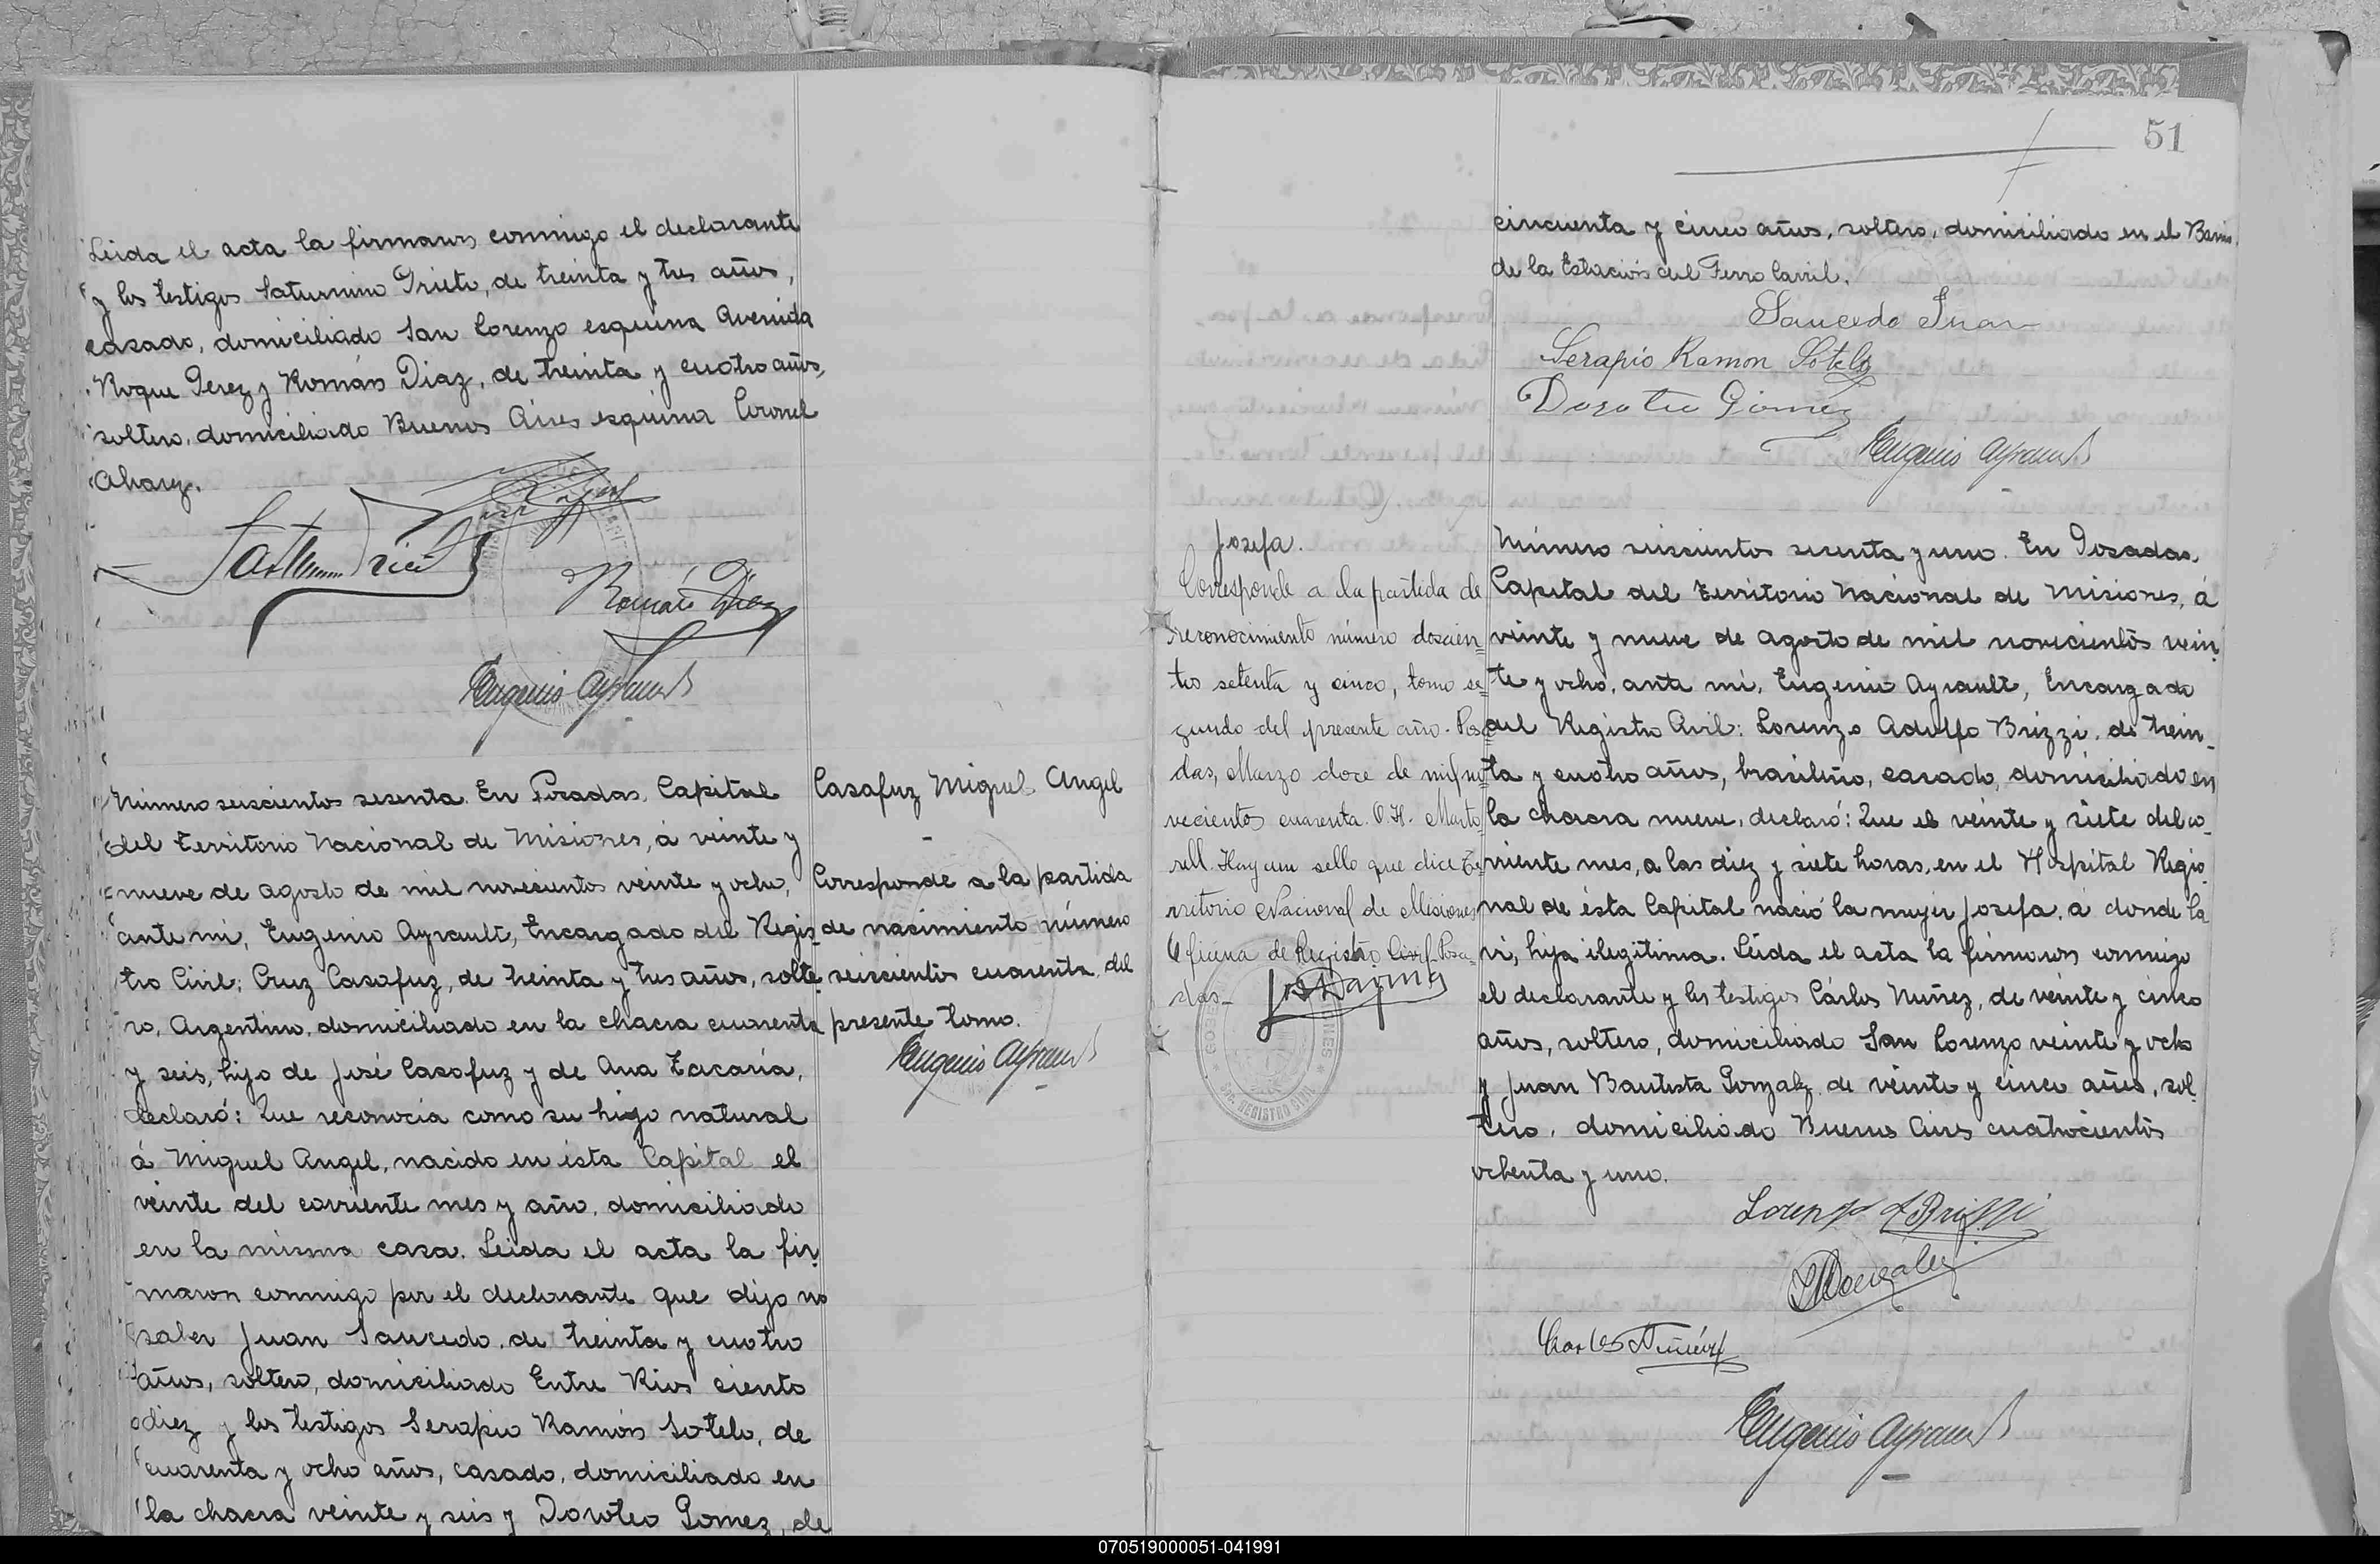 Leida el acta la firmaron conmigo el declarante
y los testigos Saturnino Prieto, de treinta y tres años,
casado, domiciliado San Lorenzo esquina Avenida
Roque Perez y Román Diaz, de treinta y cuatro años,
soltero, domiciliado Buenos Aires esquina Coronel
Alvarez.
Román Diaz
Eugenio Ayrault
Número seiscientos sesenta. En Posadas, Capital
del Territorio Nacional de Misiones, á veinte y
nueve de agosto de mil novecientos veinte y ocho,
ante mi, Eugenio Ayrault, Encargado del Regis-
tro Civil: Cruz Casafuz, de treinta y tres años, solte-
ro, Argentino, domiciliado en la chacra cuarenta
y seis, hijo de José Casafuz y de Ana Zacaría,
declaró: Que reconocia como su hijo natural
á Miguel Angel, nacido en ésta Capital el
veinte del corriente mes y año, domiciliado
en la misma casa. Leida el acta la fir-
maron conmigo por el declarante que dijo no
saber Juan Saucedo, de treinta y cuatro
años, soltero, domiciliado Entre Rios ciento
diez y los testigos Serapio Ramón Sotelo, de
cuarenta y ocho años, casado, domiciliado en
la chacra veinte y seis y Doroteo Gomez, de
Casafuz Miguel Angel
Corresponde a la partida
de nacimiento número
seiscientos cuarenta del
presente tomo.
Eugenio Ayrault
51
cincuenta y cinco años, soltero, domiciliado en el Barrio
de la Estación del Ferro Carril.
Saucedo Juan
Serapio Ramon Sotelo
Doroteo Gomez
Eugenio Ayrault
Josefa.
Corresponde a la partida de
reconocimiento número doscien=
tos setenta y cinco, tomo se=
gundo del presente año. Posa=
das, Marzo doce de mil no
vecientos cuarenta. O.H. Marto
rell. Hay un sello que dice Te=
rritorio Nacional de Misiones
Oficina de Registro Civil Posa=
das_
REGISTRO CIVIL
Número seiscientos sesenta y uno. En Posadas,
Capital del Territorio Nacional de Misiones, á
veinte y nueve de agosto de mil novecientos vein-
te y ocho, ante mi, Eugenio Ayrault, Encargado
del Registro Civil: Lorenzo Adolfo Brizzi, de trein-
ta y cuatro años, brasileño, casado, domiciliado en
la chacra nueve, declaró: Que el veinte y siete del co-
rriente mes, a las diez y siete horas, en el Hospital Regio-
nal de ésta Capital nació la mujer Josefa, á donde la
vi, hija ilegitima. Leida el acta la firmaron conmigo
el declarante y los testigos Cárlos Nuñez, de veinte y cinco
años, soltero, domiciliado San Lorenzo veinte y ocho
y Juan Bautista Gonzalez de veinte y cinco años, sol-
tero, domiciliado Buenos Aires cuatrocientos
ochenta y uno.
Lorenzo A Brizzi
Carlos Nuñez
Eugenio Ayrault
070519000051-041991